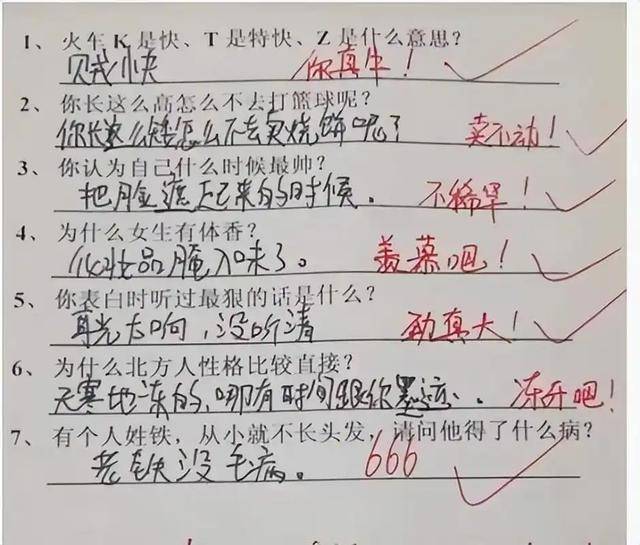 1、火车 K 是快、T 是特快、Z 是什么意思?
贼快 你真牛!
2、你长这么高怎么不去打篮球呢?
你长这么矮怎么不去卖烧饼呢? 卖不动!
3、你认为自己什么时候最帅?
把脸遮起来的时候。 不稀罕!
4、为什么女生有体香?
化妆品腌入味了。 羡慕吧!
5、你表白时听过最狠的话是什么?
耳光太响,没听清 劲真大!
6、为什么北方人性格比较直接?
天寒地冻的,哪有时间跟你墨迹。 冻开吧!
7、有个人姓铁,从小就不长头发,请问他得了什么病?
老铁没毛病。 666